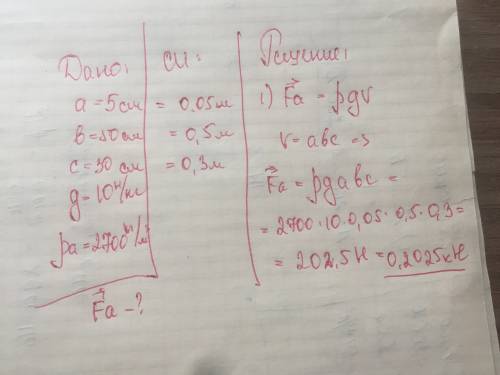 Дано:
a = 5 см
b = 50 см
c = 30 см
g = 10 Н/кг
ρa = 2700 кг/м³
F⃗a - ?
СИ:
= 0,05 м
= 0,5 м
= 0,3 м
Решение:
1) F⃗a = ρgV
V = abc =>
F⃗a = ρgabc =
= 2700 · 10 · 0,05 · 0,5 · 0,3 =
= 202,5 Н = 0,2025 кН